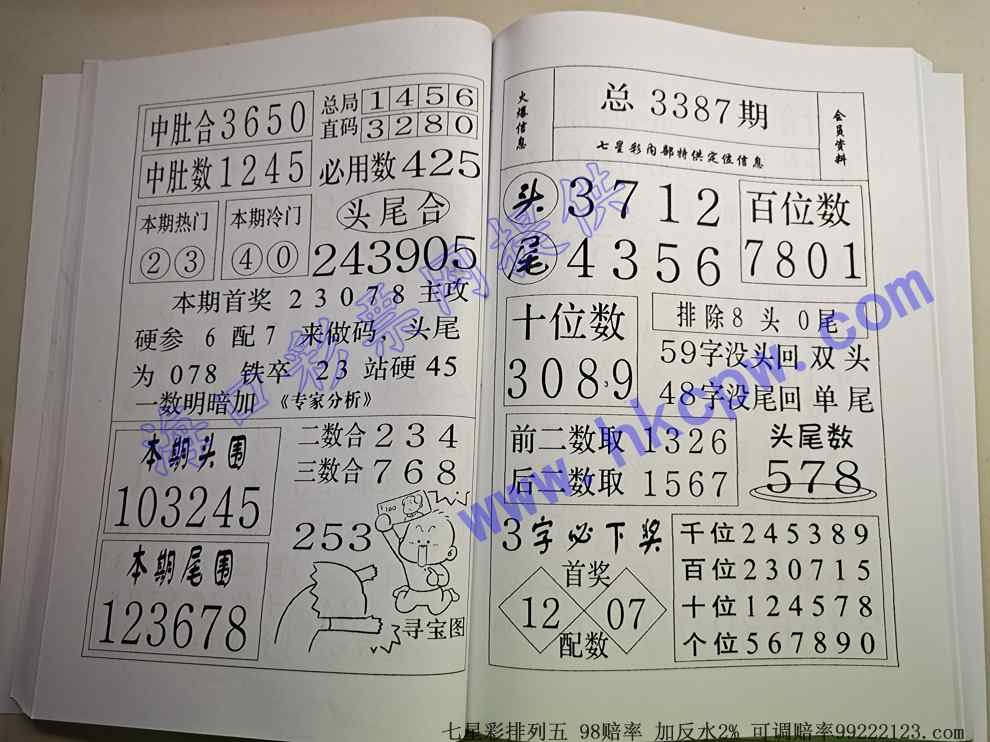 中肚合3650
总局 1456
直码 3280
中肚数1245
必用数425
本期热门
②③
本期冷门
④⓪
头尾合
243905
本期首奖 23078主攻
硬参 6 配 7 来做码，头尾
为 078 铁卒 23 站硬 45
一数明暗加 《专家分析》
本期头围
103245
二数合 234
三数合 768
本期尾围
123678
253
100
寻宝图
火爆信息
总 3387期
七星彩内部特供定位信息
会员资料
头 3712
尾 4356
百位数
7801
十位数
3089
3
排除8头0尾
59字没头回 双 头
48字没尾回 单 尾
前二数取 1326
后二数取 1567
头尾数
578
3字必下奖
首奖
12 07
配数
千位245389
百位230715
十位124578
个位567890
海口彩票网提供
www.hkcpw.com
七星彩排列五 98赔率 加反水2% 可调赔率99222123.com